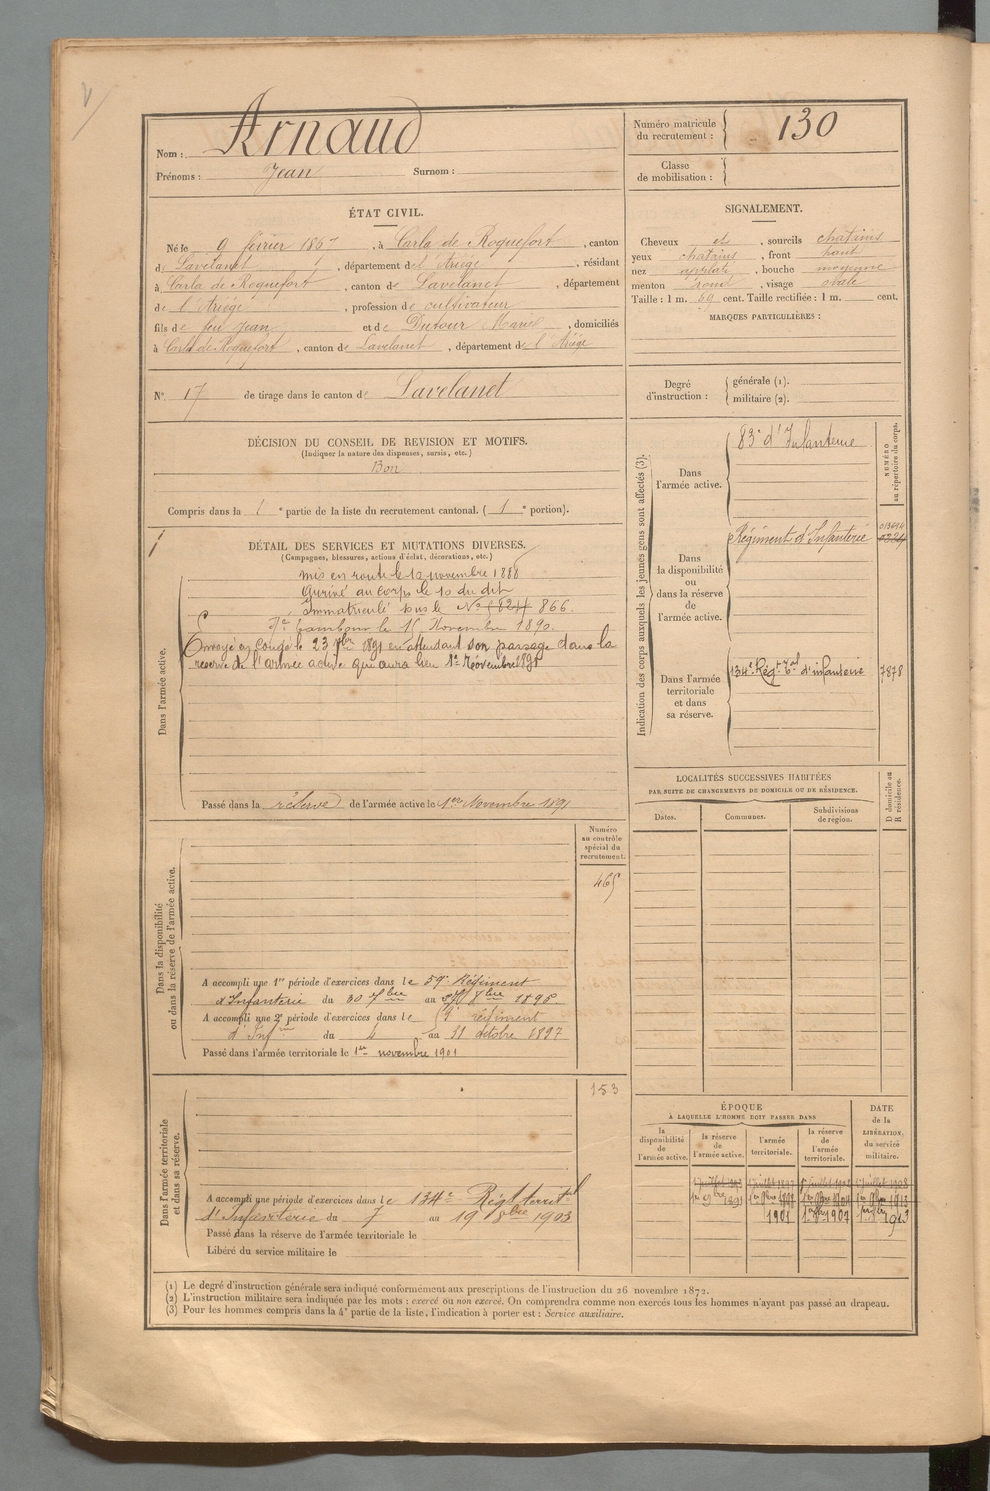 Nom : Arnaud
Prénoms : Jean Surnom :
Numéro matricule du recrutement : 130
Classe de mobilisation :
ÉTAT CIVIL.
Né le 9 février 1867, à Carla de Roquefort, canton
de Lavelanet, département de l'Ariège, résidant
à Carla de Roquefort, canton de Lavelanet, département
de l'Ariège, profession de cultivateur
fils de feu Jean et de Dutour Marie, domiciliés
à Carla de Roquefort, canton de Lavelanet, département de l'Ariège
SIGNALEMENT.
Cheveux et, sourcils chatains
yeux chatains, front haut
nez, bouche moyenne
menton rond, visage ovale
Taille : 1 m. 59 cent. Taille rectifiée : 1 m. cent.
MARQUES PARTICULIÈRES :
N° 17 de tirage dans le canton de Lavelanet
Degré d'instruction : générale (1).
militaire (2).
DÉCISION DU CONSEIL DE REVISION ET MOTIFS.
(Indiquer la nature des dispenses, sursis, etc.)
Bon
Compris dans la 1e partie de la liste du recrutement cantonal. (1e portion).
DÉTAIL DES SERVICES ET MUTATIONS DIVERSES.
(Campagnes, blessures, actions d'éclat, décorations, etc.)
Dans l'armée active.
Mis en route le 10 novembre 1888
Arrivé au corps le 10 du dit
Immatriculé sous le N° 866.
tambour le Novembre 1890.
Envoyé en congé le 23 7bre 1891 en attendant son passage dans la
réserve de l'armée active qui aura lieu 1er Novembre 1891
Passé dans la réserve de l'armée active le 1er Novembre 1891
Indication des corps auxquels les jeunes gens sont affectés (3).
NUMÉRO au répertoire du corps.
Dans l'armée active.
83e d'Infanterie
Dans la disponibilité ou dans la réserve de l'armée active.
Régiment d'Infanterie
Dans l'armée territoriale et dans sa réserve.
134e Régt Tal d'infanterie 7878
LOCALITÉS SUCCESSIVES HABITÉES
PAR SUITE DE CHANGEMENTS DE DOMICILE OU DE RÉSIDENCE.
Dates. Communes. Subdivisions de région.
D domicile ou R résidence.
Dans la disponibilité ou dans la réserve de l'armée active.
Numéro au contrôle spécial du recrutement.
465
A accompli une 1re période d'exercices dans le 59e Régiment
d'Infanterie du 30 7bre au 8bre 1895
A accompli une 2e période d'exercices dans le régiment
d'Infie du 4 au 31 octobre 1897
Passé dans l'armée territoriale le 1er novembre 1901
Dans l'armée territoriale et dans sa réserve.
153
A accompli une période d'exercices dans le 134e Régt territal
d'Infanterie du 7 au 19 8bre 1903
Passé dans la réserve de l'armée territoriale le
Libéré du service militaire le
ÉPOQUE
À LAQUELLE L'HOMME DOIT PASSER DANS
la disponibilité de l'armée active.
la réserve de l'armée active.
l'armée territoriale.
la réserve de l'armée territoriale.
DATE de la LIBÉRATION du service militaire.
1901 1907 1913
(1) Le degré d'instruction générale sera indiqué conformément aux prescriptions de l'instruction du 26 novembre 1872.
(2) L'instruction militaire sera indiquée par les mots : exercé ou non exercé. On comprendra comme non exercés tous les hommes n'ayant pas passé au drapeau.
(3) Pour les hommes compris dans la 4e partie de la liste, l'indication à porter est : Service auxiliaire.